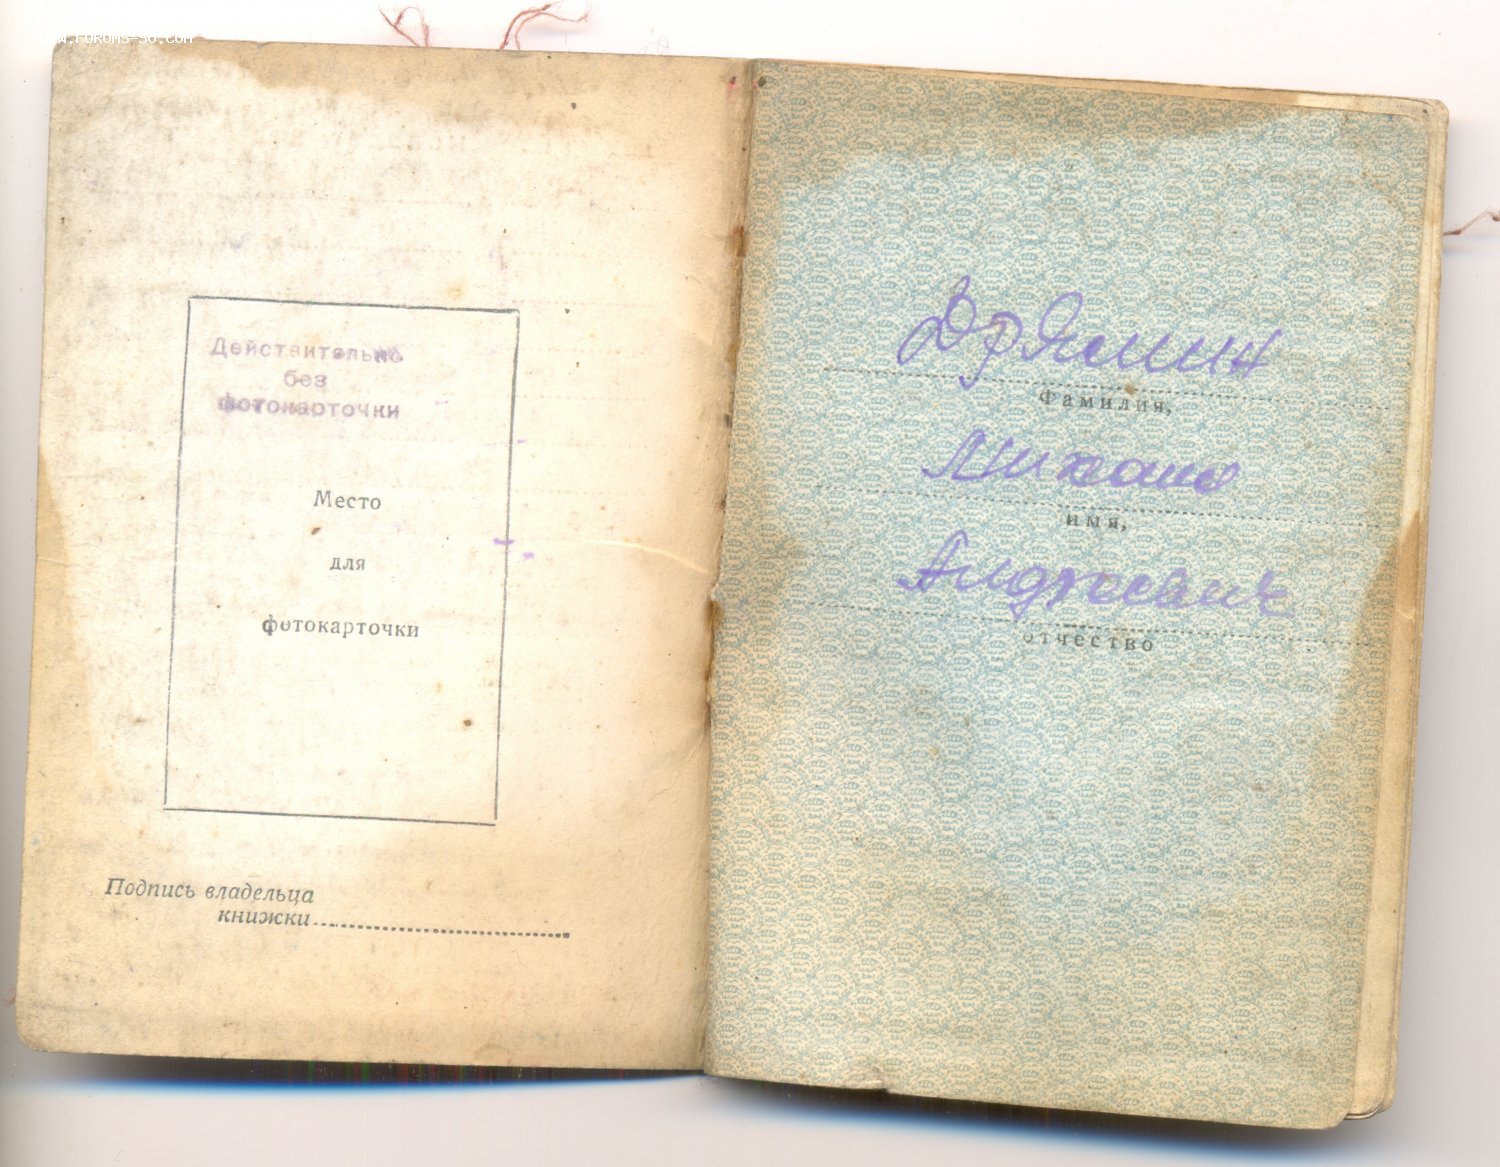 WWW.FORUMS-SU.COM
Действительно
без
фотокарточки
Место
для
фотокарточки
Подпись владельца
книжки
Дрямин
Фамилия,
Михаил
имя,
Андреевич
отчество